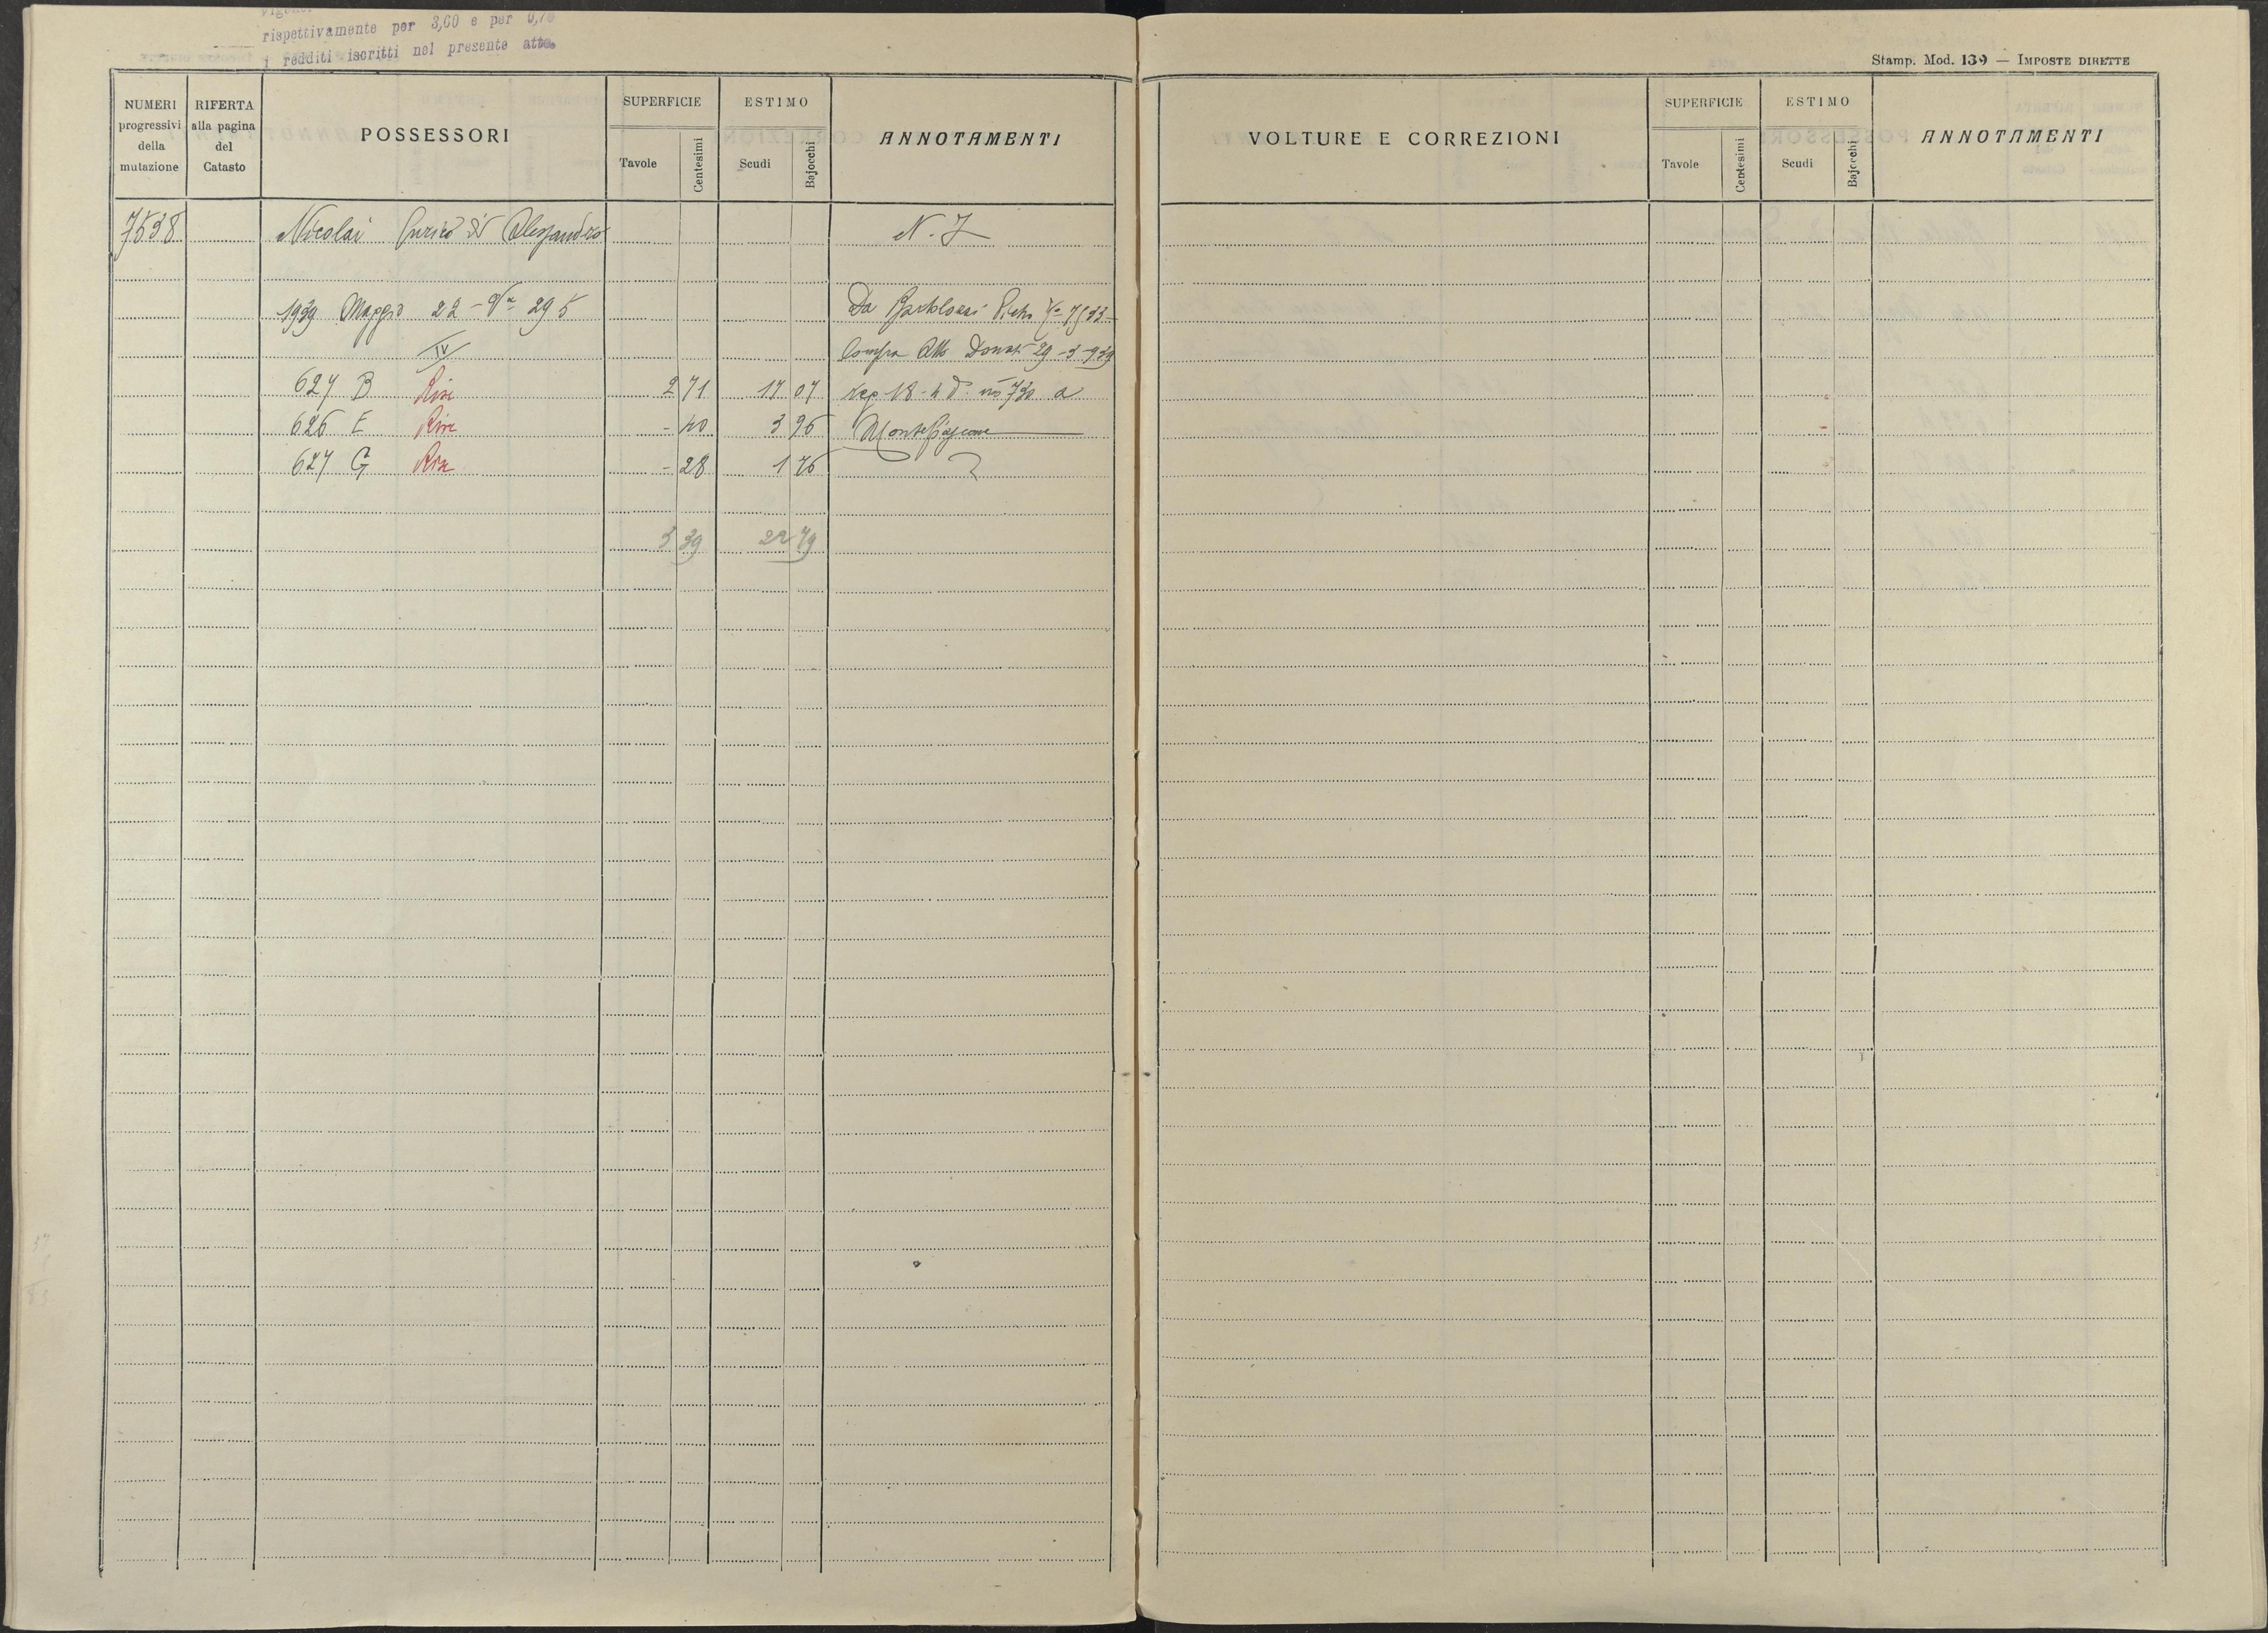 rispettivamente per 3,60 e per 0,70
i redditi iscritti nel presente atto.
NUMERI progressivi della mutazione
RIFERTA alla pagina del Catasto
POSSESSORI
SUPERFICIE
Tavole
Centesimi
ESTIMO
Scudi
Bajocchi
ANNOTAMENTI
7538 Nicolai Enrico di Alessandro N. I
1939 Maggio 22 - Va 295 Da Bartolozzi Pietro 7533
IV Compra Atto Donati 29-3-939
627 B Rise 2 71 17 07 reg. 18-4 d. no 730 a
626 E Rise - 40 3 96 Montefiascone
627 G Rise - 28 1 76
3 39 22 79
Stamp. Mod. 139 — IMPOSTE DIRETTE
VOLTURE E CORREZIONI
SUPERFICIE
Tavole
Centesimi
ESTIMO
Scudi
Bajocchi
ANNOTAMENTI